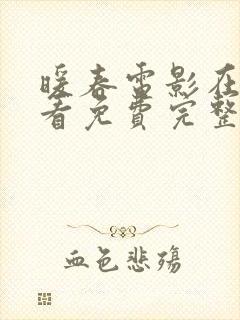 暖春雷影在
看免费完整
血色悲殇